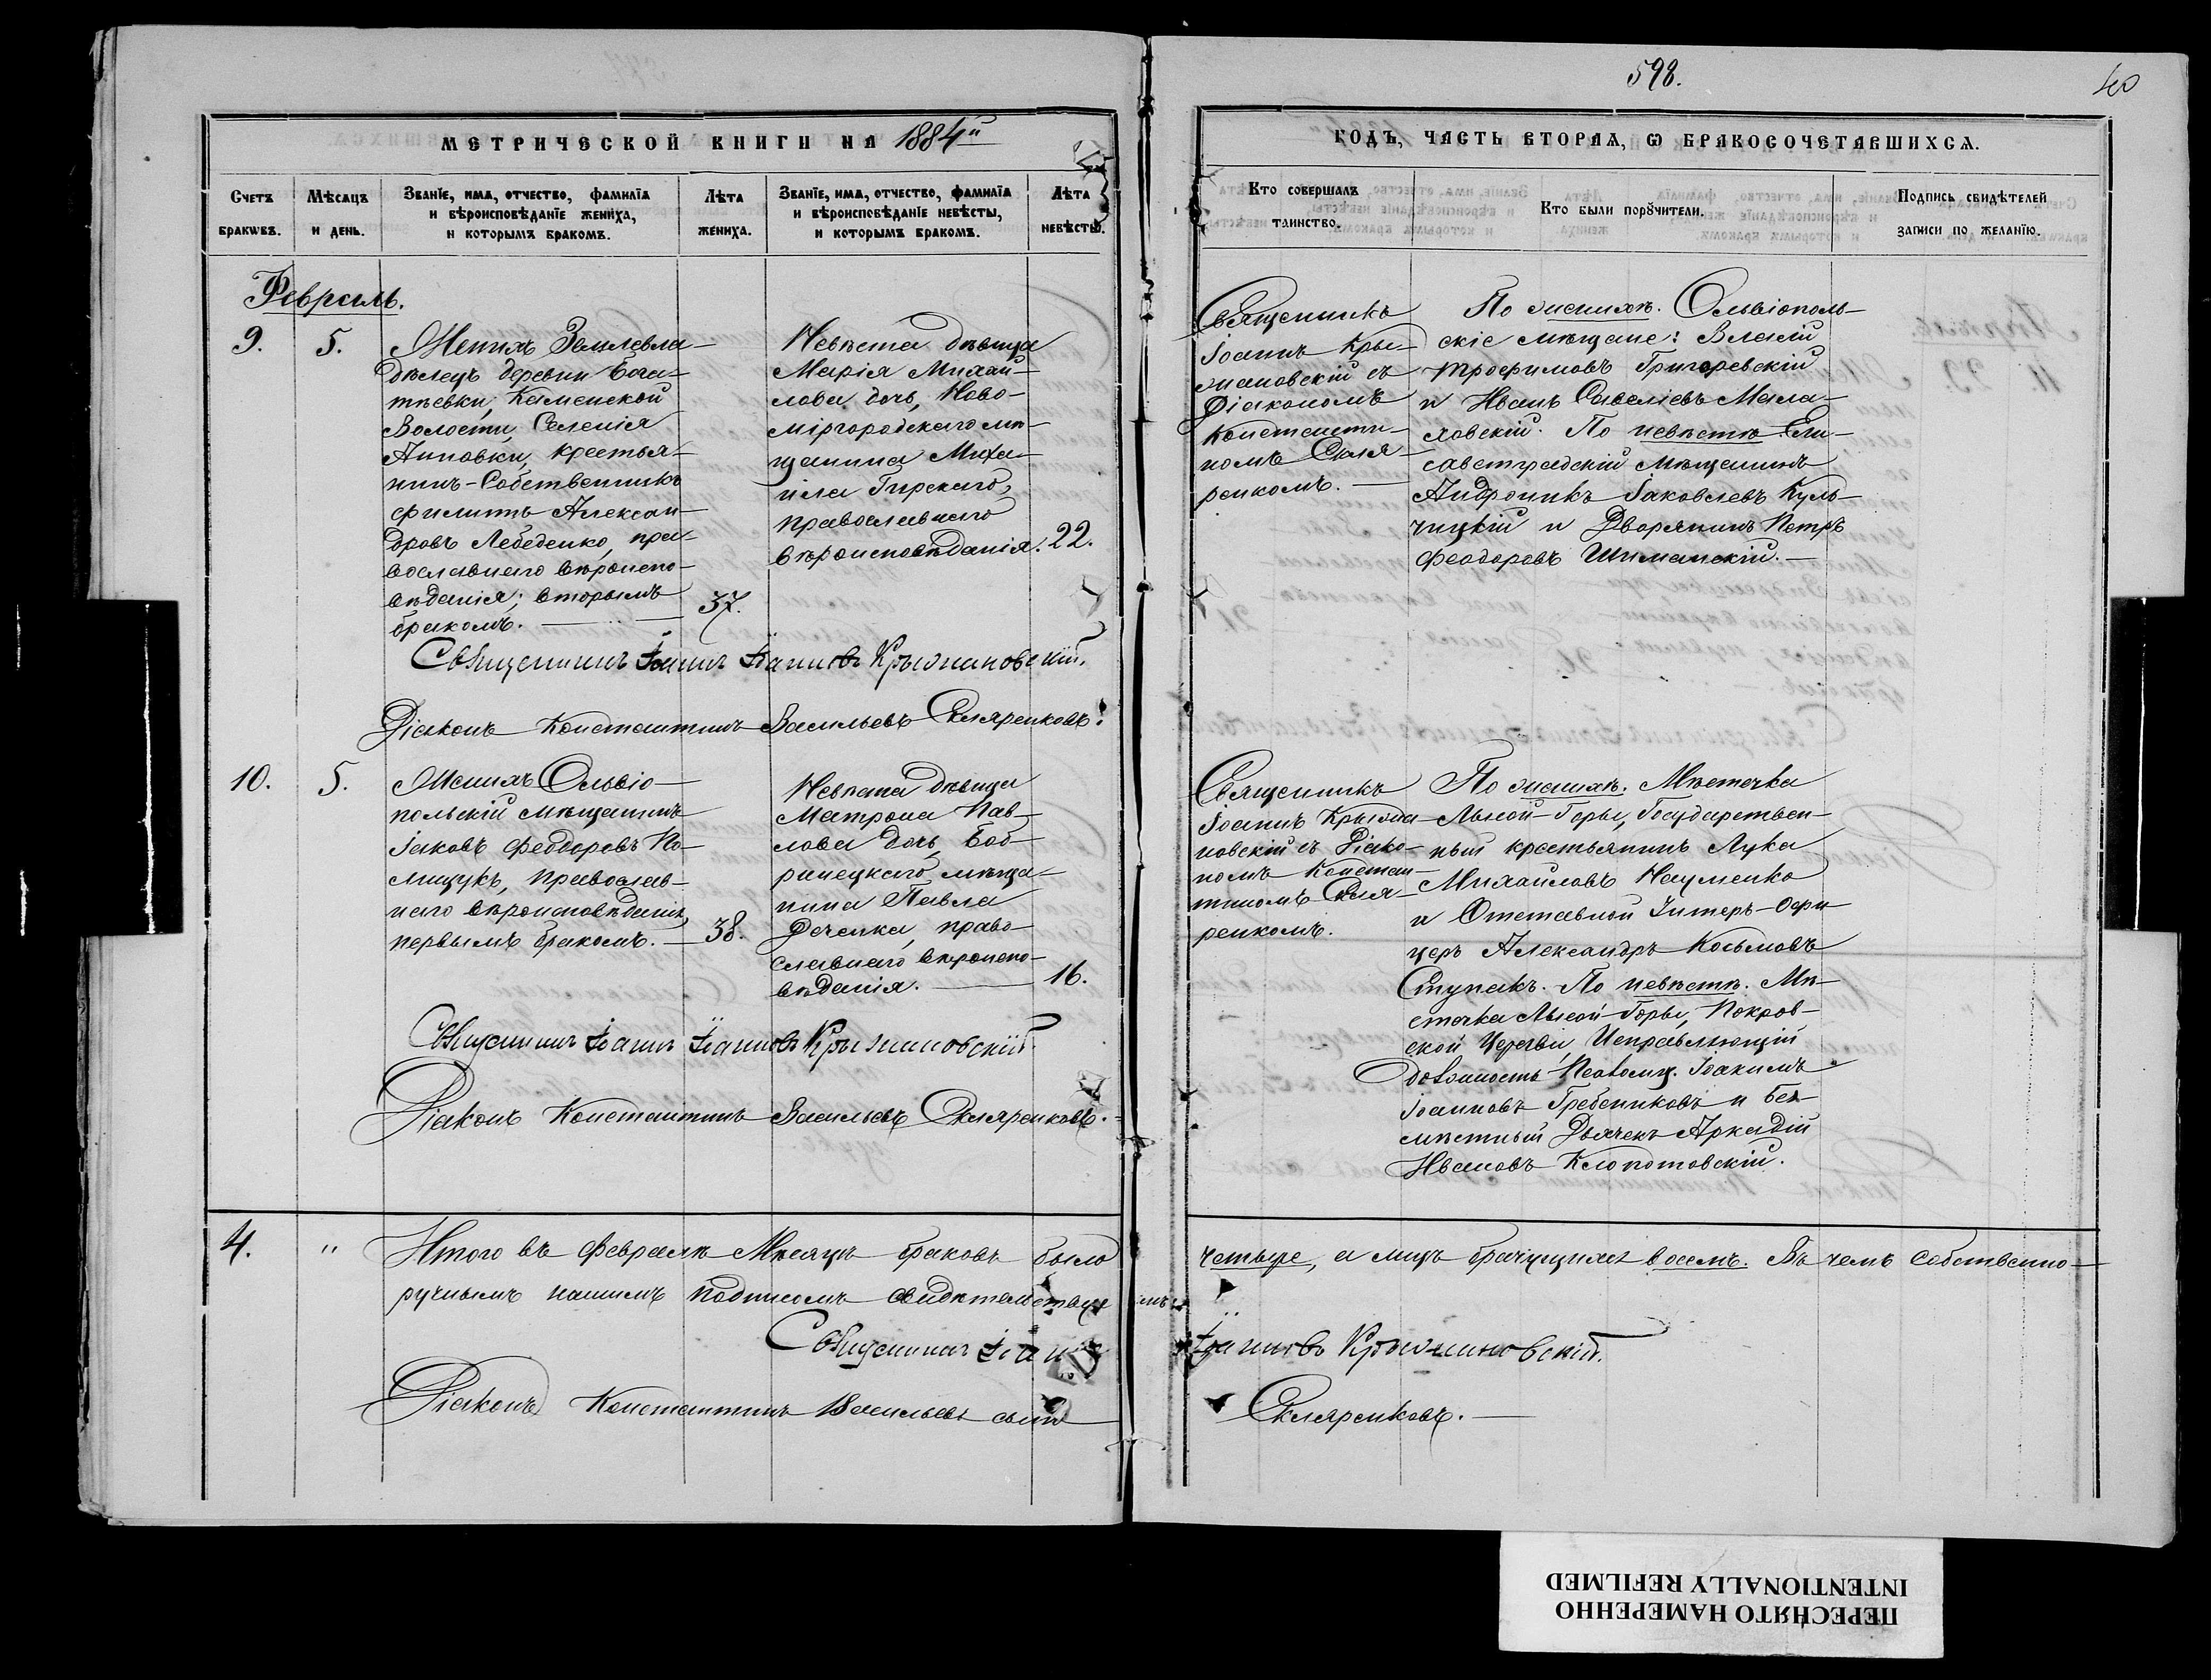 598.
40
МЕТРИЧЕСКОЙ КНИГИ НА 1884й
ГОДЪ, ЧАСТЬ ВТОРАЯ, Ѡ БРАКОСОЧЕТАВШИХСЯ.
Счетъ браковъ.
Мѣсяцъ и день.
Званіе, имя, отчество, фамилія
и вѣроисповѣданіе жениха,
и которымъ бракомъ.
Лѣта
жениха.
Званіе, имя, отчество, фамилія
и вѣроисповѣданіе невѣсты,
и которымъ бракомъ.
Лѣта
невѣсты.
Кто совершалъ
таинство.
Кто были порꙋчители.
Подпись свидѣтелей
записи по желанію.
Февраль.
9.
5.
Женихъ Землевла-
дѣлецъ деревни Бога-
тѣевки, Каменской
Волости, Селенія
Анновки, крестья-
нинъ-Собственникъ
Филиппъ Алексан-
дровъ Лебеденко, пра-
вославнаго вѣроиспо-
вѣданія; вторымъ
бракомъ.
37.
Невѣста дѣвица
Марія Михай-
лова дочь, Ново-
миргородскаго мѣ-
щанина Миха-
ила Гирскаго,
православнаго
вѣроисповѣданія.
22.
Священникъ
Іоаннъ Кры-
жановскій съ
Діакономъ
Константи-
номъ Скля-
ренкомъ.
По женихѣ. Ольвіополь-
скіе мѣщане: Власій
Трофимовъ Григоревскій
и Иванъ Савеліевъ Мала-
ховскій. По невѣстѣ Ели-
саветградскій Мѣщанинъ
Андроникъ Іаковлевъ Куль-
чицкій и Дворянинъ Петръ
Феодоровъ Шиманскій.
Священникъ Іоаннъ Іоанновъ Крыжановскій.
Діаконъ Константинъ Васильевъ Скляренковъ.
10.
5.
Женихъ Ольвіо-
польскій мѣщанинъ
Іаковъ Феодоровъ По-
лищукъ, православ-
наго вѣроисповѣданія,
первымъ бракомъ.
38.
Невѣста дѣвица
Матрона Пав-
лова дочь, Боб-
ринецкаго мѣща-
нина Павла
Деченка, право-
славнаго вѣроиспо-
вѣданія.
16.
Священникъ
Іоаннъ Крыжа-
новскій съ Діако-
номъ Констан-
тиномъ Скля-
ренкомъ.
По женихѣ. Мѣстечка
Лысой-Горы, Государствен-
ный крестьянинъ Лука
Михайловъ Науменко
и Отставной Унтеръ-Офи
церъ Александръ Косьмовъ
Ступакъ. По невѣстѣ. Мѣ-
стечка Лысой-Горы, Покров-
ской Церкви, Исправляющій
должность Псаломщ. Іоакимъ
Іоанновъ Гребенниковъ и без-
мѣстный Дьячекъ Аркадій
Ивановъ Клопотовскій.
Священникъ Іоаннъ Іоанновъ Крыжановскій.
Діаконъ Константинъ Васильевъ Скляренковъ.
4.
"
Итого въ Февралѣ Мѣсяцѣ браковъ было четыре, а лицъ брачущихся восемь. Въ чемъ собственно-
ручнымъ нашимъ подписомъ свидѣтельствуемъ
Священникъ Іоаннъ Іоанновъ Крыжановскій.
Діаконъ Константинъ Васильевъ сынъ Скляренковъ.
ПЕРЕСНЯТО НАМЕРЕННО
INTENTIONALLY REFILMED